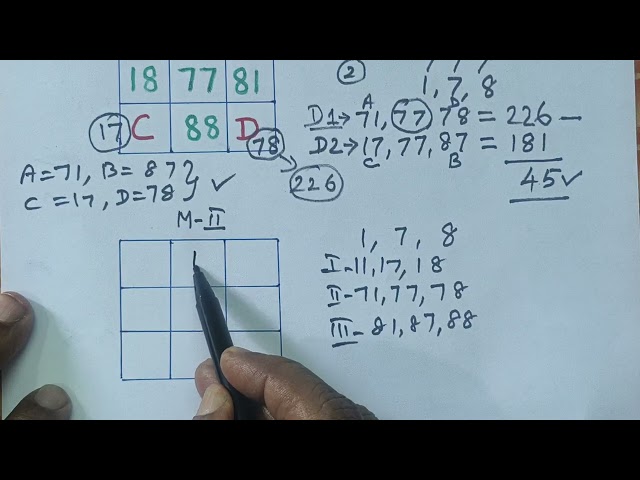 1, 7, 8
②
18 77 81
17 C 88 D 78
A B
D1→71, 77 78 = 226 —
D2→17, 77, 87 = 181
C B
45✓
226
A=71, B=87 } ✓
C=17, D=78
M-II
1
1, 7, 8
I-11, 17, 18
II-71, 77, 78
III-81, 87, 88